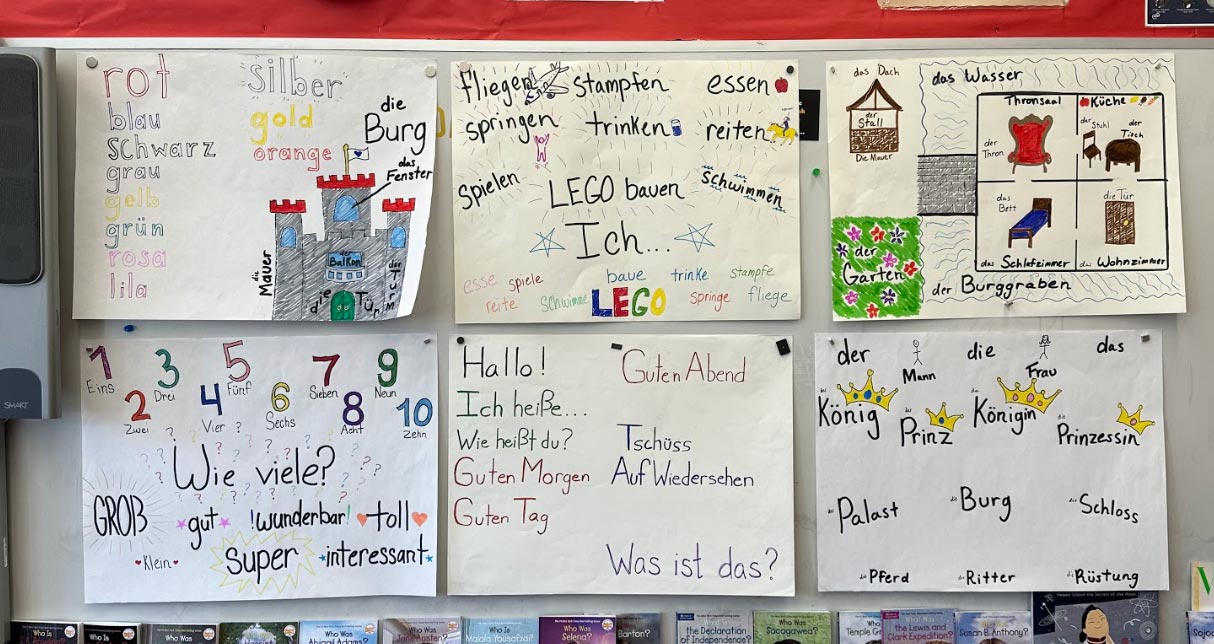 rot
blau
schwarz
grau
gelb
grün
rosa
lila
silber
gold
orange
die Burg
das Fenster
die Mauer
der Balkon
der Turm
die Tür
fliegen stampfen essen
springen trinken reiten
spielen LEGO bauen schwimmen
Ich...
esse spiele baue trinke stampfe
reite schwimme LEGO springe fliege
das Dach
der Stall
Die Mauer
das Wasser
Thronsaal
der Thron
Küche
der Stuhl
der Tisch
das Bett
das Schlafzimmer
die Tür
das Wohnzimmer
der Garten
der Burggraben
1 Eins
2 Zwei
3 Drei
4 Vier
5 Fünf
6 Sechs
7 Sieben
8 Acht
9 Neun
10 Zehn
Wie viele?
GROß gut !wunderbar! toll
Klein Super interessant
Hallo!
Ich heiße...
Wie heißt du?
Guten Morgen
Guten Tag
Guten Abend
Tschüss
Auf Wiedersehen
Was ist das?
der die das
Mann Frau
König Prinz Königin Prinzessin
Palast Burg Schloss
Pferd Ritter Rüstung
SMART
Who Is
Who Was
Abigail Adams?
Who Is
Malala Yousafzai?
Who Was
Selena?
Barton?
the Declaration
of Independence?
Who Was
Sacagawea?
the Lewis and
Clark Expedition?
Who Was
Susan B. Anthony?